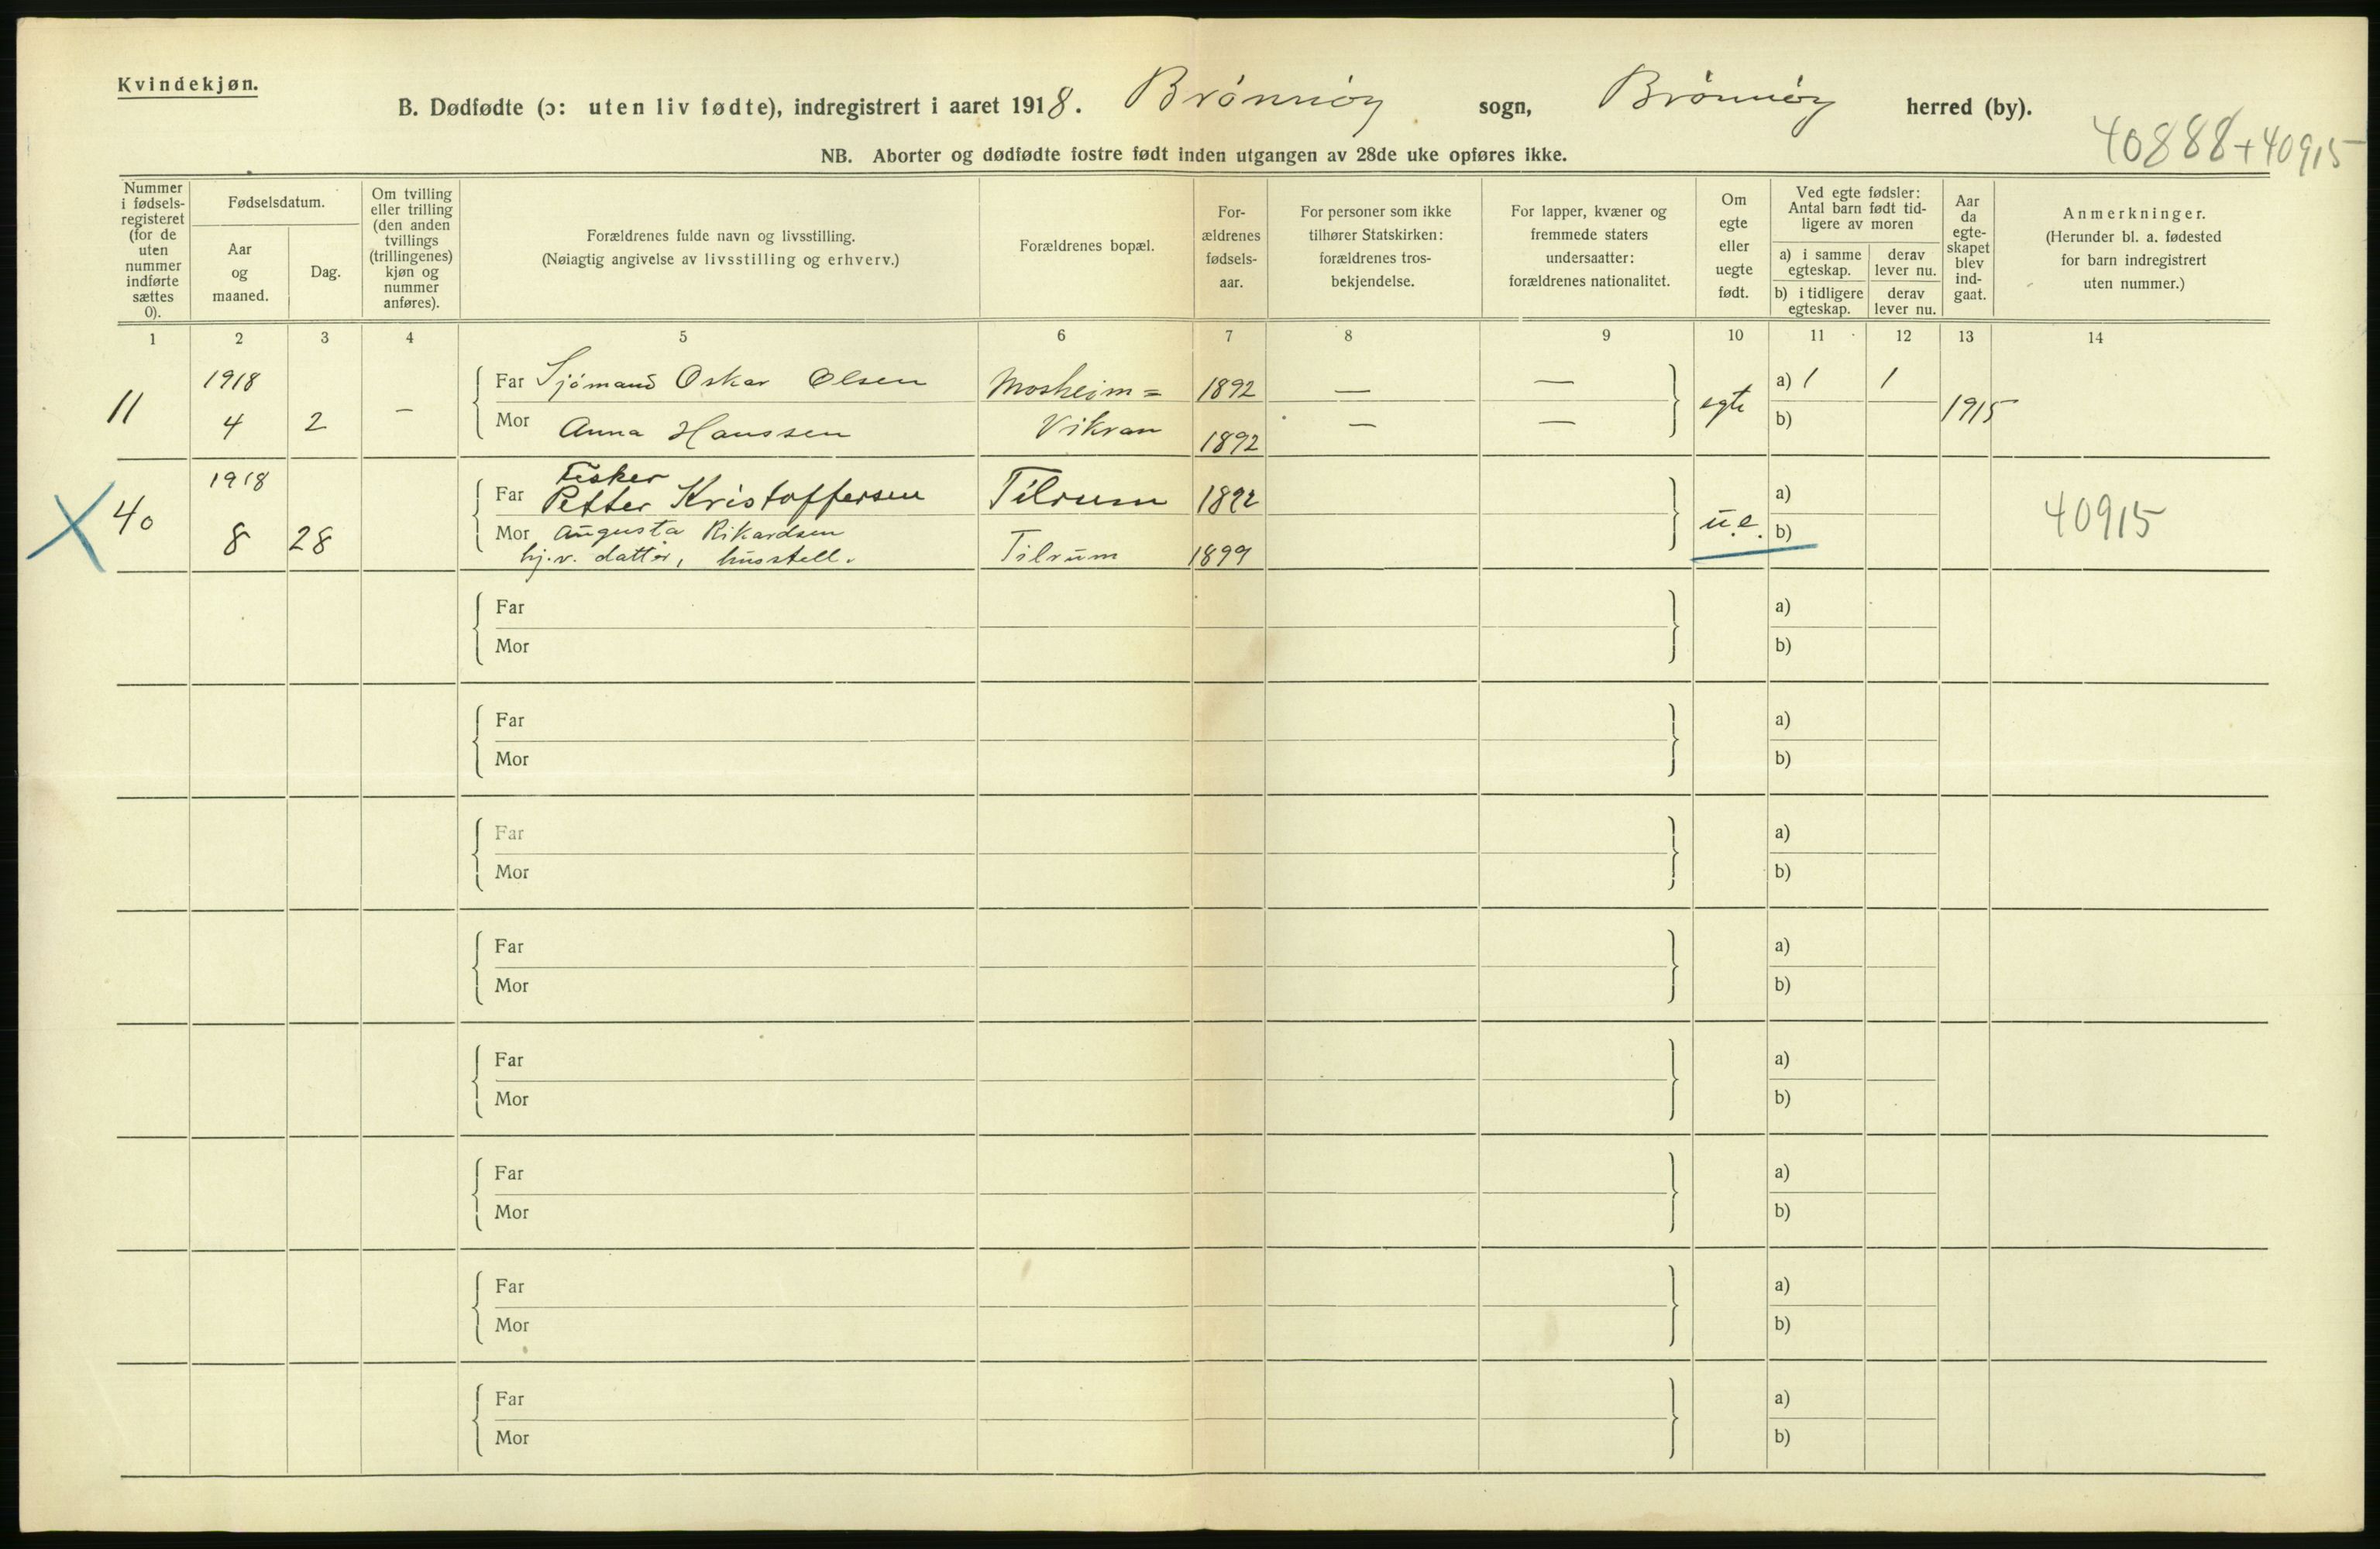 Kvindekjøn.
B. Dødfødte (ɔ: uten liv fødte), indregistrert i aaret 1918. Brønnøy sogn, Brønnøy herred (by).
40888+40915
NB. Aborter og dødfødte fostre født inden utgangen av 28de uke opføres ikke.
Nummer i fødsels-registeret (for de uten nummer indførte sættes 0).
Fødselsdatum.
Aar og maaned.
Dag.
Om tvilling eller trilling (den anden tvillings (trillingenes) kjøn og nummer anføres).
Forældrenes fulde navn og livsstilling.
(Nøiagtig angivelse av livsstilling og erhverv.)
Forældrenes bopæl.
For-ældrenes fødsels-aar.
For personer som ikke tilhører Statskirken: forældrenes tros-bekjendelse.
For lapper, kvæner og fremmede staters undersaatter: forældrenes nationalitet.
Om egte eller uegte født.
Ved egte fødsler: Antal barn født tid-ligere av moren
a) i samme egteskap.
derav lever nu.
b) i tidligere egteskap.
derav lever nu.
Aar da egte-skapet blev ind-gaat.
Anmerkninger.
(Herunder bl. a. fødested for barn indregistrert uten nummer.)
1 2 3 4 5 6 7 8 9 10 11 12 13 14
11 1918 4 2 –
Far Sjömand Oskar Olsen Mosheim= 1892 — — egte a) 1 1 1915
Mor Anna Hanssen Vikran 1892 — — b)
40 1918 8 28
Fisker
Far Petter Kristoffersen Tilrum 1892 u.e. a) 40915
Mor Augusta Rikardsen b)
hj.v. datter, husstell. Tilrum 1899
Far a)
Mor b)
Far a)
Mor b)
Far a)
Mor b)
Far a)
Mor b)
Far a)
Mor b)
Far a)
Mor b)
Far a)
Mor b)
Far a)
Mor b)